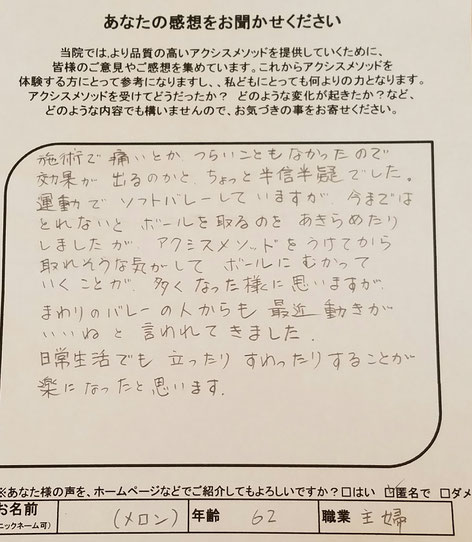 あなたの感想をお聞かせください
当院では、より品質の高いアクシスメソッドを提供していくために、
皆様のご意見やご感想を集めています。これからアクシスメソッドを
体験する方にとって参考になりますし、、私どもにとっても何よりの力となります。
アクシスメソッドを受けてどうだったか？ どのような変化が起きたか？など、
どのような内容でも構いませんので、お気づきの事をお寄せください。
施術で 痛いとか、つらいこともなかったので
効果が 出るのかと、ちょっと半信半疑でした。
運動で ソフトバレーしていますが、今までは
とれないと ボールを取るのを あきらめたり
しましたが、アクシスメソッドをうけてから
取れそうな気がして ボールにむかって
いくことが、多くなった様に思いますが、
まわりのバレーの人からも 最近 動きが
いいねと 言われてきました．
日常生活でも 立ったり すわったりすることが
楽になったと思います．
※あなた様の声を、ホームページなどでご紹介してもよろしいですか？□はい ☑匿名で □ダメ
お名前 (メロン) 年齢 62 職業 主婦
ニックネーム可）